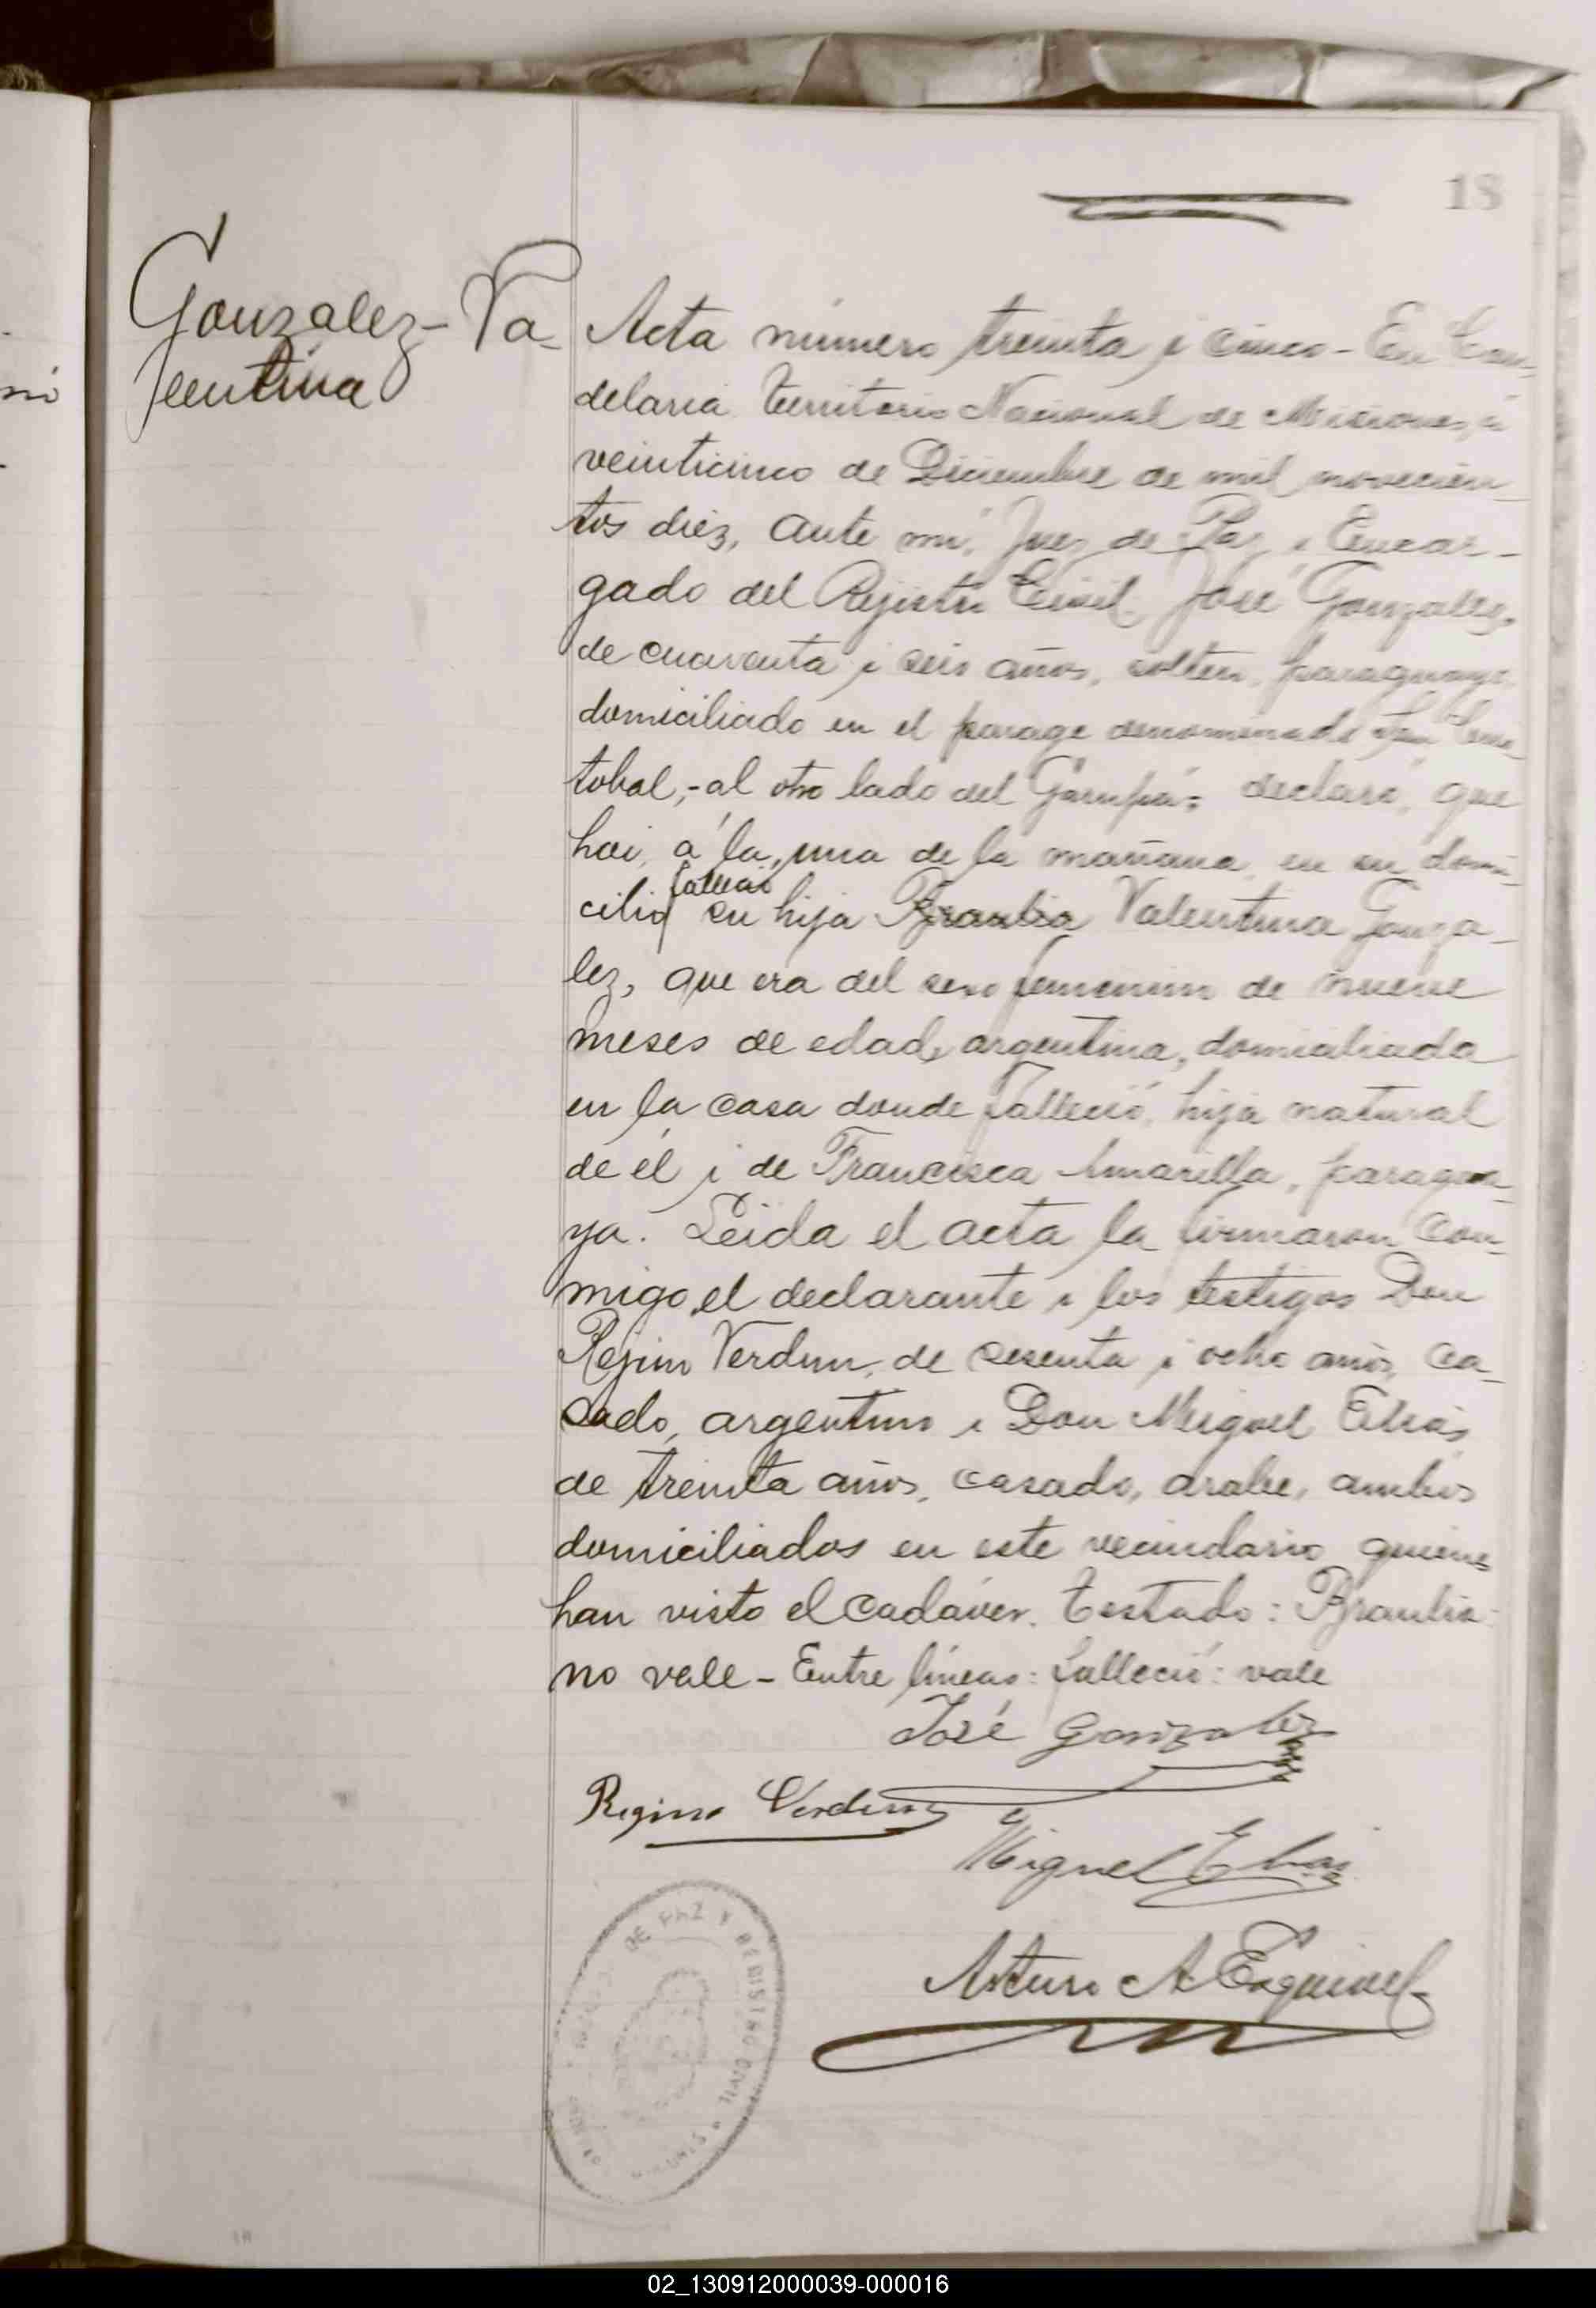 18
Gonzalez - Va-
lentina
Acta número treinta i cinco - En Can-
delaria Territorio Nacional de Misiones, á
veinticinco de Diciembre de mil novecien-
tos diez, ante mi, Juez de Paz i Encar-
gado del Rejistro Civil José Gonzalez,
de cuarenta i seis años, soltero, paraguayo
domiciliado en el parage denominado San Cris
tobal, - al otro lado del Garupá; declaró, que
hoi, á la una de la mañana, en su domi-
falleció
cilio su hija Braulia Valentina Gonza-
lez, que era del sexo femenino de nueve
meses de edad, argentina, domiciliada
en la casa donde falleció, hija natural
de él i de Francisca Amarilla, paragua-
ya. Leida el acta la firmaron con-
migo el declarante i los testigos Don
Rejino Verdun, de sesenta i ocho años, ca-
sado, argentino i Don Miguel Elias,
de treinta años, casado, arabe, ambos
domiciliados en este vecindario quienes
han visto el cadáver. Testado: Braulia:
no vale - Entre líneas: falleció: vale
José Gonzalez
Regino Verdun
Miguel Elias
Arturo A Esquivel
DE PAZ Y REGISTRO CIVIL
02_130912000039-000016